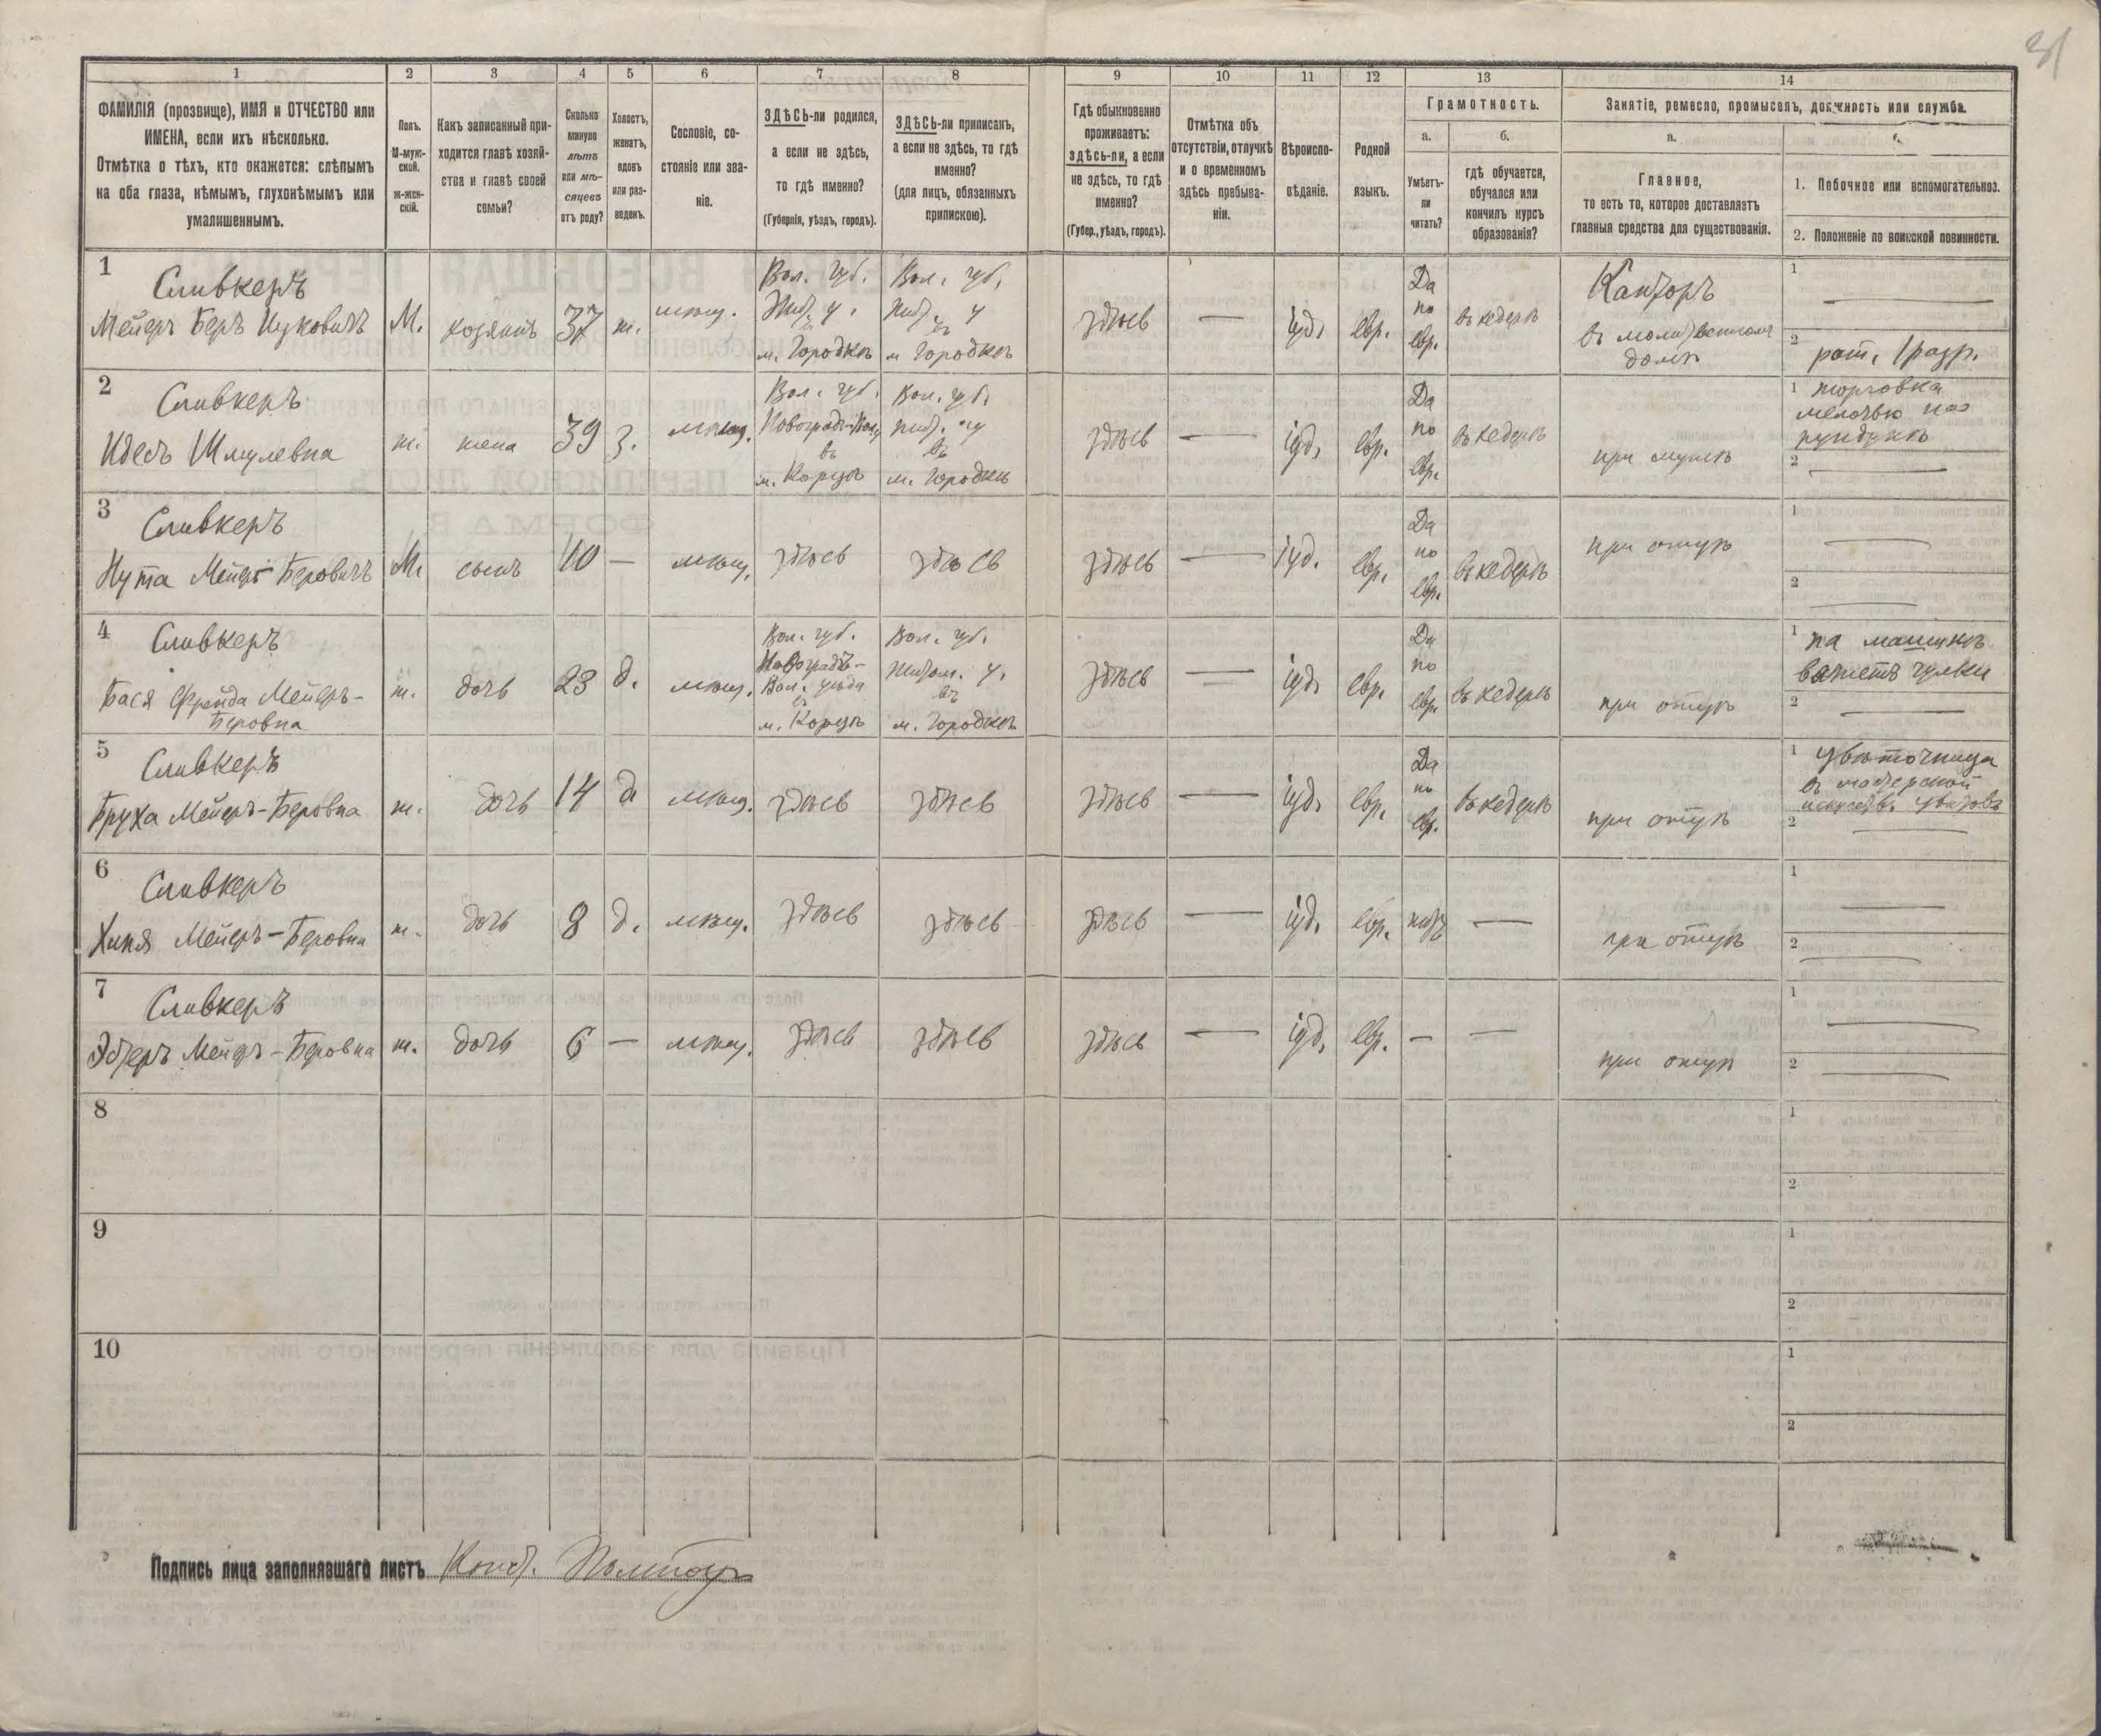 31
1 2 3 4 5 6 7 8 9 10 11 12 13 14
ФАМИЛІЯ (прозвище), ИМЯ и ОТЧЕСТВО или
ИМЕНА, если ихъ нѣсколько.
Отмѣтка о тѣхъ, кто окажется: слѣпымъ
на оба глаза, нѣмымъ, глухонѣмымъ или
умалишеннымъ.
Полъ.
М-муж-
ской.
Ж-жен-
скій.
Какъ записанный при-
ходится главѣ хозяй-
ства и главѣ своей
семьи?
Сколько
минуло
лѣтъ
или мѣ-
сяцевъ
отъ роду?
Холостъ,
женатъ,
вдовъ
или раз-
веденъ.
Сословіе, со-
стояніе или зва-
ніе.
ЗДѢСЬ-ли родился,
а если не здѣсь,
то гдѣ именно?
(Губернія, уѣздъ, городъ).
ЗДѢСЬ-ли приписанъ,
а если не здѣсь, то гдѣ
именно?
(для лицъ, обязанныхъ
припискою).
Гдѣ обыкновенно
проживаетъ:
здѣсь-ли, а если
не здѣсь, то гдѣ
именно?
(Губер., уѣздъ, городъ).
Отмѣтка объ
отсутствіи, отлучкѣ
и о временномъ
здѣсь пребыва-
ніи.
Вѣроиспо-
вѣданіе.
Родной
языкъ.
Грамотность.
а.
Умѣетъ-
ли
читать?
б.
гдѣ обучается,
обучался или
кончилъ курсъ
образованія?
Занятіе, ремесло, промыселъ, должность или служба.
а.
Главное,
то есть то, которое доставляетъ
главныя средства для существованія.
1. Побочное или вспомогательное.
2. Положеніе по воинской повинности.
1
Сливкеръ
Мейеръ Беръ Ицковичъ
М.
хозяинъ
37
ж.
мѣщ.
Вол. губ.
Жит. у.
м. Городкѣ
Вол. губ.
Жит. у
въ
м Городкѣ
здѣсь
—
іуд.
евр.
Да
по
евр.
въ хедерѣ
Канторъ
въ молитвенномъ
домѣ
1 —
2 рат. 1 разр.
2
Сливкеръ
Идесъ Шмулевна
ж.
жена
39
з.
мѣщ.
Вол. губ.
Новоградъ-Вол у
въ
м. Корцъ
Вол. губ.
Жит. у
въ
м. Городкѣ
здѣсь
—
іуд.
евр.
Да
по
евр.
въ хедерѣ
при мужѣ
1 торговка
мелочью на
2 —
3
Сливкеръ
Нута Мейеръ-Беровичъ
М.
сынъ
10
—
мѣщ.
здѣсь
здѣсь
здѣсь
—
іуд.
евр.
Да
по
евр.
въ хедерѣ
при отцѣ
1 —
2 —
4
Сливкеръ
Бася Фрейда Мейеръ-
Беровна
ж.
дочь
23
д.
мѣщ.
Вол. губ.
Новоградъ-
Вол. уѣзда
въ
м. Корцѣ
Вол. губ.
Житом. у.
въ
м. Городкѣ
здѣсь
—
іуд.
евр.
Да
по
евр.
въ хедерѣ
при отцѣ
1 на машинкѣ
вяжетъ чулки
2 —
5
Сливкеръ
Бруха Мейеръ-Беровна
ж.
дочь
14
д
мѣщ.
здѣсь
здѣсь
здѣсь
—
іуд.
евр.
Да
по
евр.
въ хедерѣ
при отцѣ
1 цвѣточница
въ мастерской
искуств. цвѣтовъ
2 —
6
Сливкеръ
Хиня Мейеръ-Беровна
ж.
дочь
8
д.
мѣщ.
здѣсь
здѣсь
здѣсь
—
іуд.
евр.
нѣтъ
—
при отцѣ
1 —
2 —
7
Сливкеръ
Эстеръ Мейеръ-Беровна
ж.
дочь
6
—
мѣщ.
здѣсь
здѣсь
здѣсь
—
іуд.
евр.
—
—
при отцѣ
1 —
2 —
8
1
2
9
1
2
10
1
2
Подпись лица заполнявшаго листъ Конст.